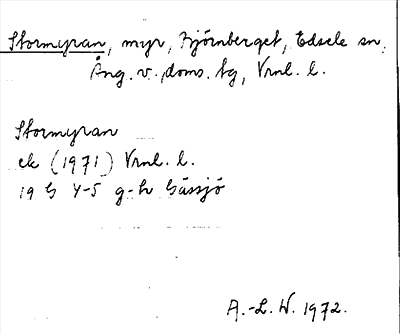 Stormyran, myr, Björnberget, Edsele sn,
Ång. v. doms. tg, Vrnl. l.
Stormyran
ek (1971) Vrnl. l.
19 G 4-5 g-h Gåssjö
A.-L. W. 1972.